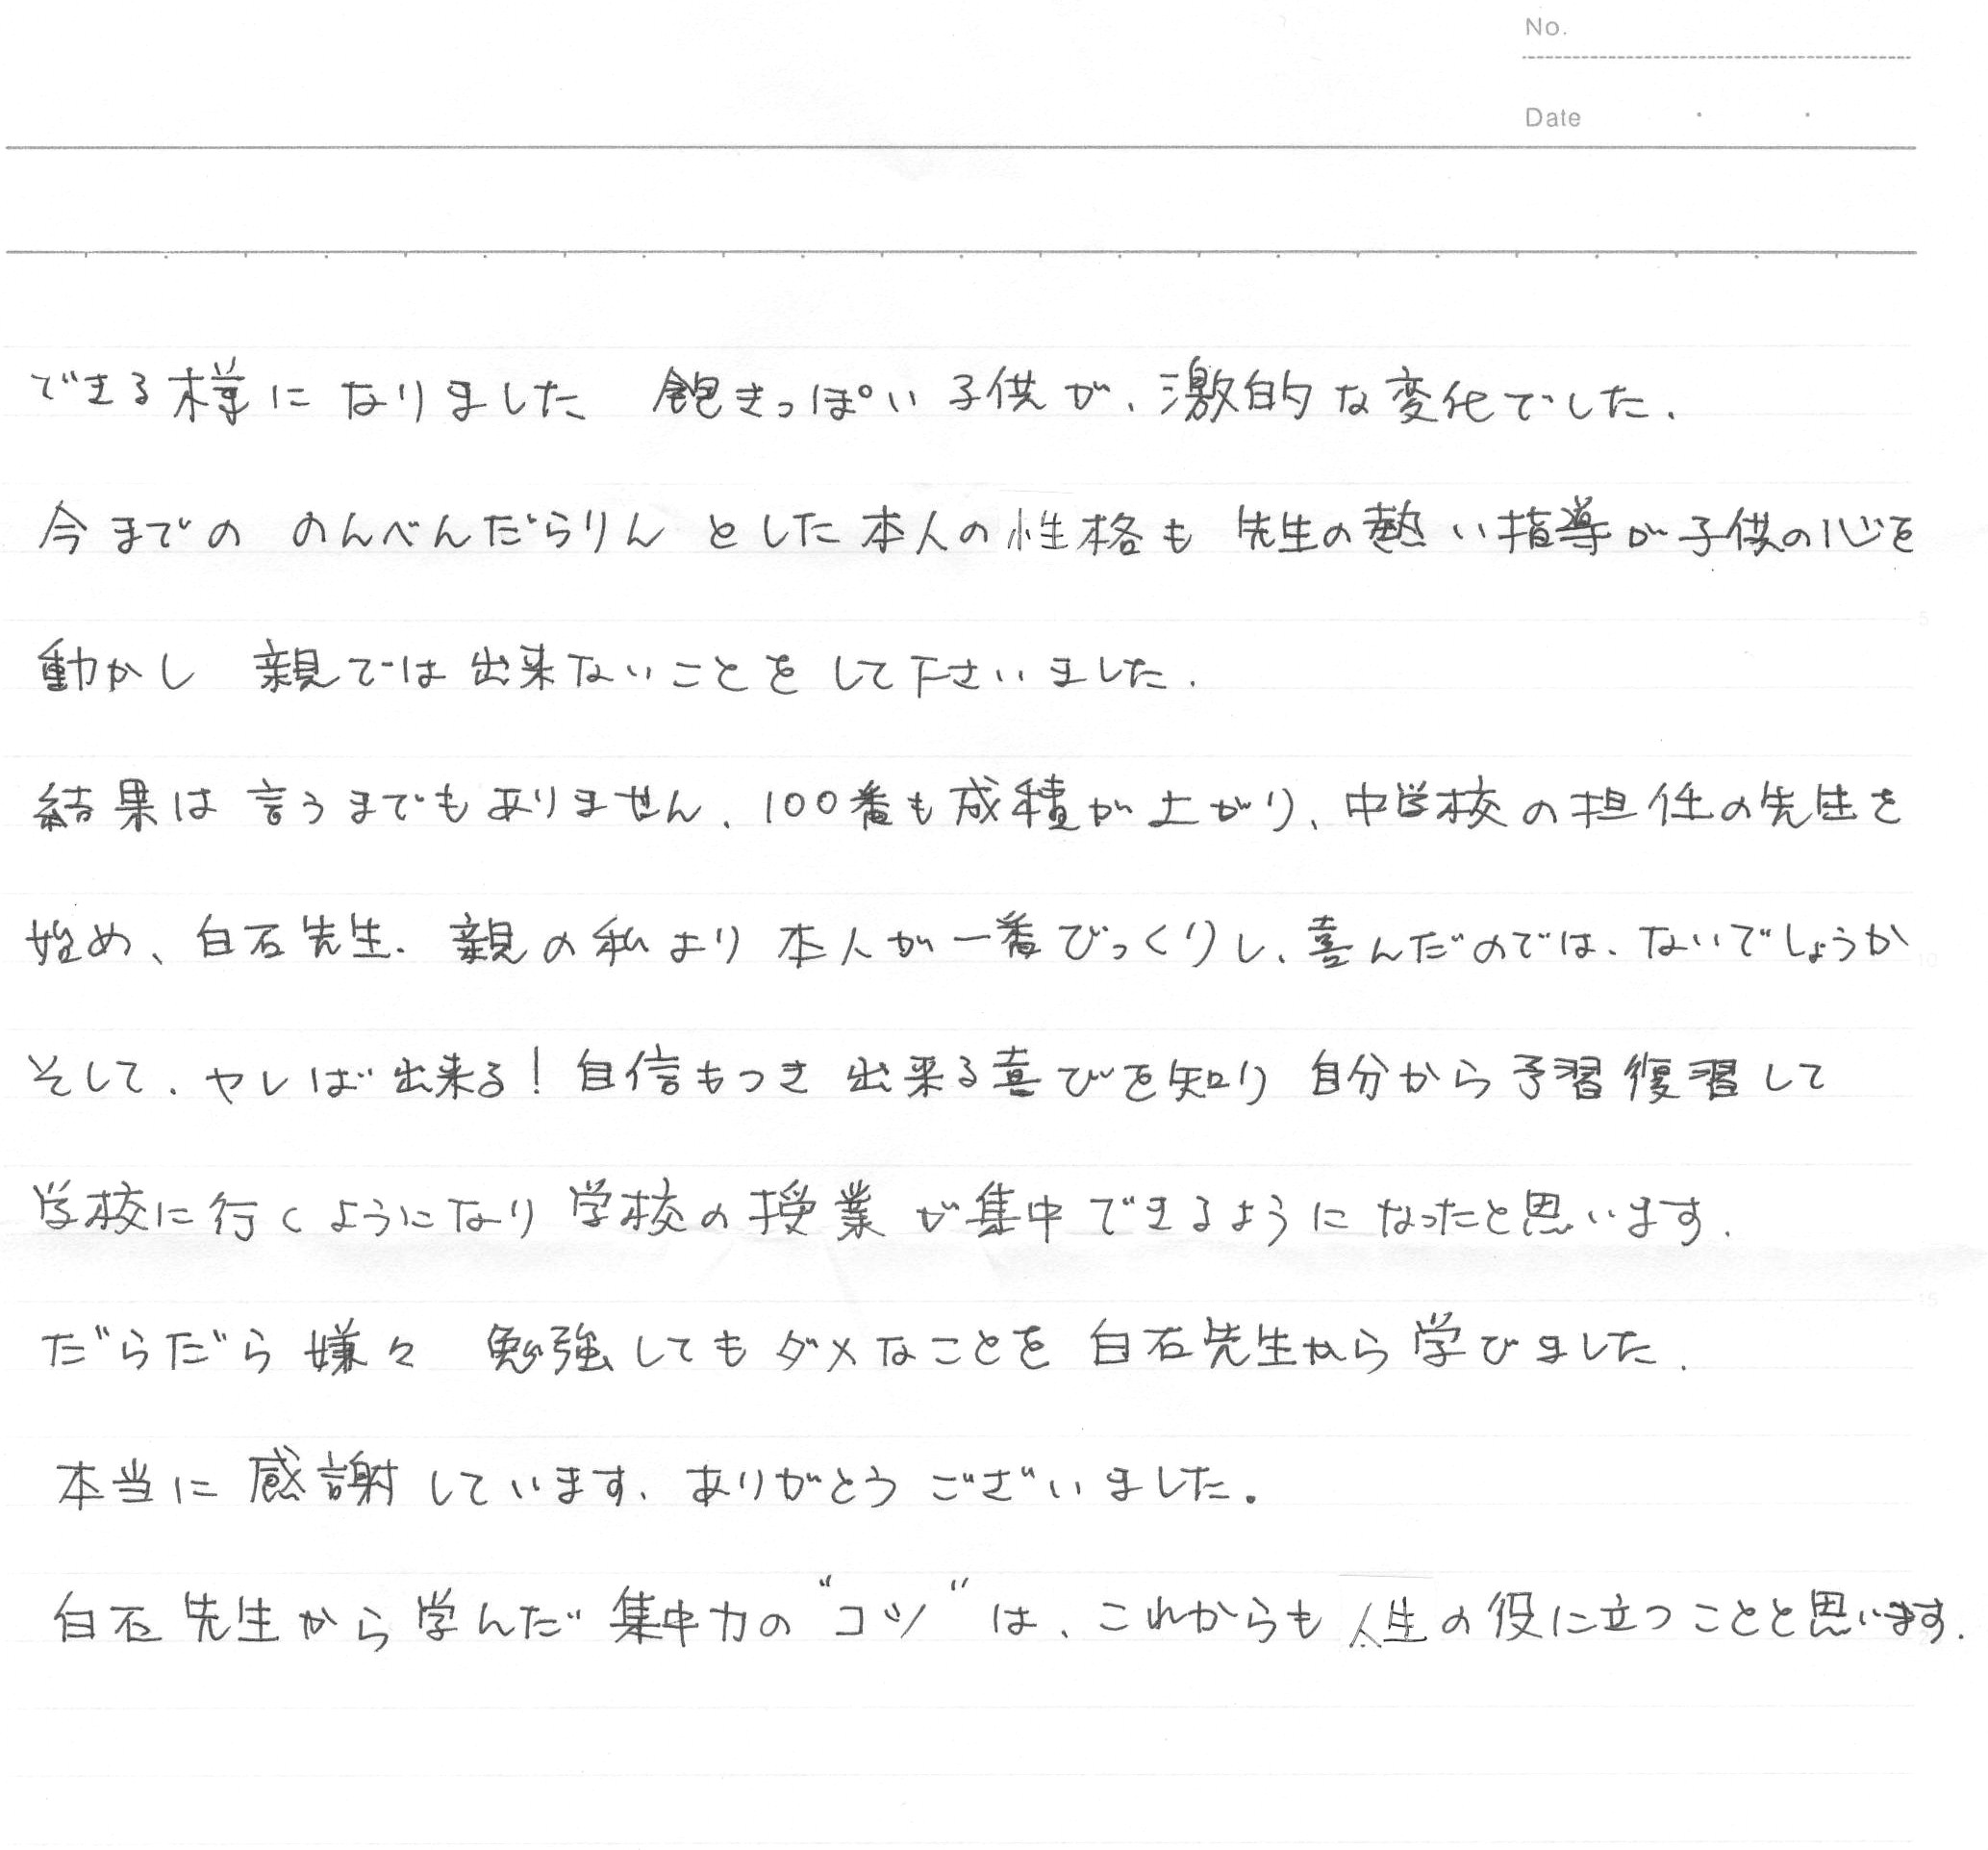 No.
Date
できる様になりました 飽きっぽい子供が、激的な変化でした.
今までの のんべんだらりん とした本人の性格も 先生の熱い指導が子供の心を
動かし 親では出来ないことをして下さいました.
結果は言うまでもありません. 100番も成積が上がり、中学校の担任の先生を
始め、白石先生. 親の私より 本人が一番びっくりし、喜んだのでは、ないでしょうか
そして. ヤレば出来る! 自信もつき 出来る喜びを知り 自分から予習復習して
学校に行くようになり 学校の授業が集中できるようになったと思います.
だらだら嫌々 勉強してもダメなことを 白石先生から学びました.
本当に感謝しています. ありがとうございました。
白石先生から学んだ集中力の"コツ"は、これからも人生の役に立つことと思います.